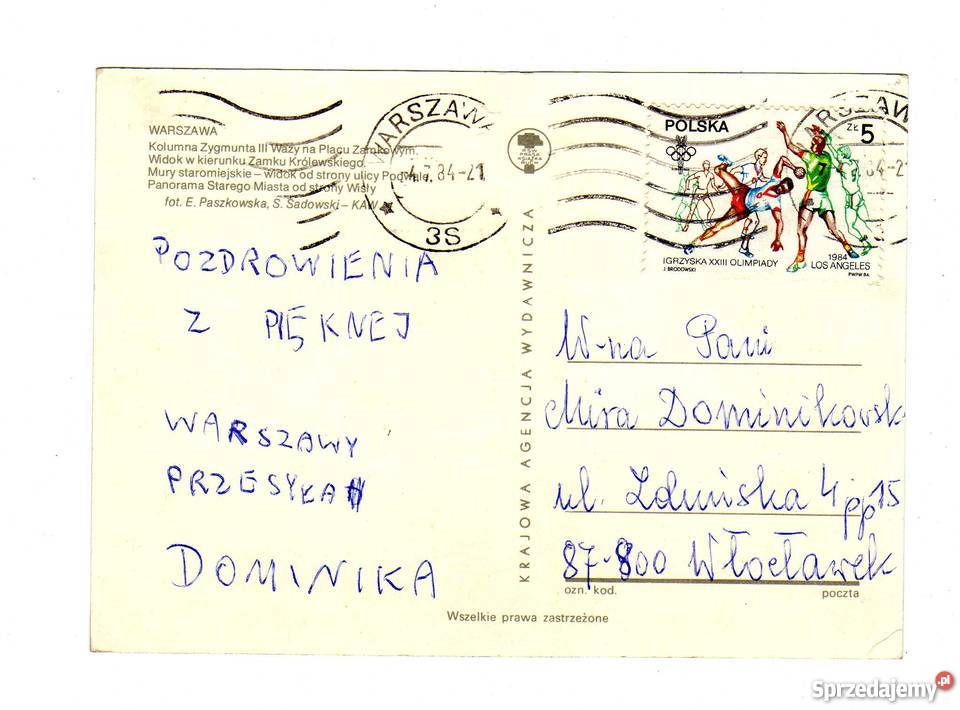 WARSZAWA
Kolumna Zygmunta III Wazy na Placu Zamkowym.
Widok w kierunku Zamku Królewskiego.
Mury staromiejskie – widok od strony ulicy Podwale.
Panorama Starego Miasta od strony Wisły
fot. E. Paszkowska, S. Sadowski – KAW
POZDROWIENIA
Z PIĘKNEJ
WARSZAWY
PRZESYŁA
DOMINIKA
WARSZAWA
84-21
3S
RSW
PRASA
KSIĄŻKA
RUCH
KRAJOWA AGENCJA WYDAWNICZA
POLSKA
ZŁ 5
7
IGRZYSKA XXIII OLIMPIADY
1984
LOS ANGELES
J. BRODOWSKI
PWPW 84
RSZAW
84-2
W-na Pani
Mira Dominikowsk
ul. Zduńska 4 pp 15
87-800 Włocławek
ozn. kod.
poczta
Wszelkie prawa zastrzeżone
Sprzedajemy.pl